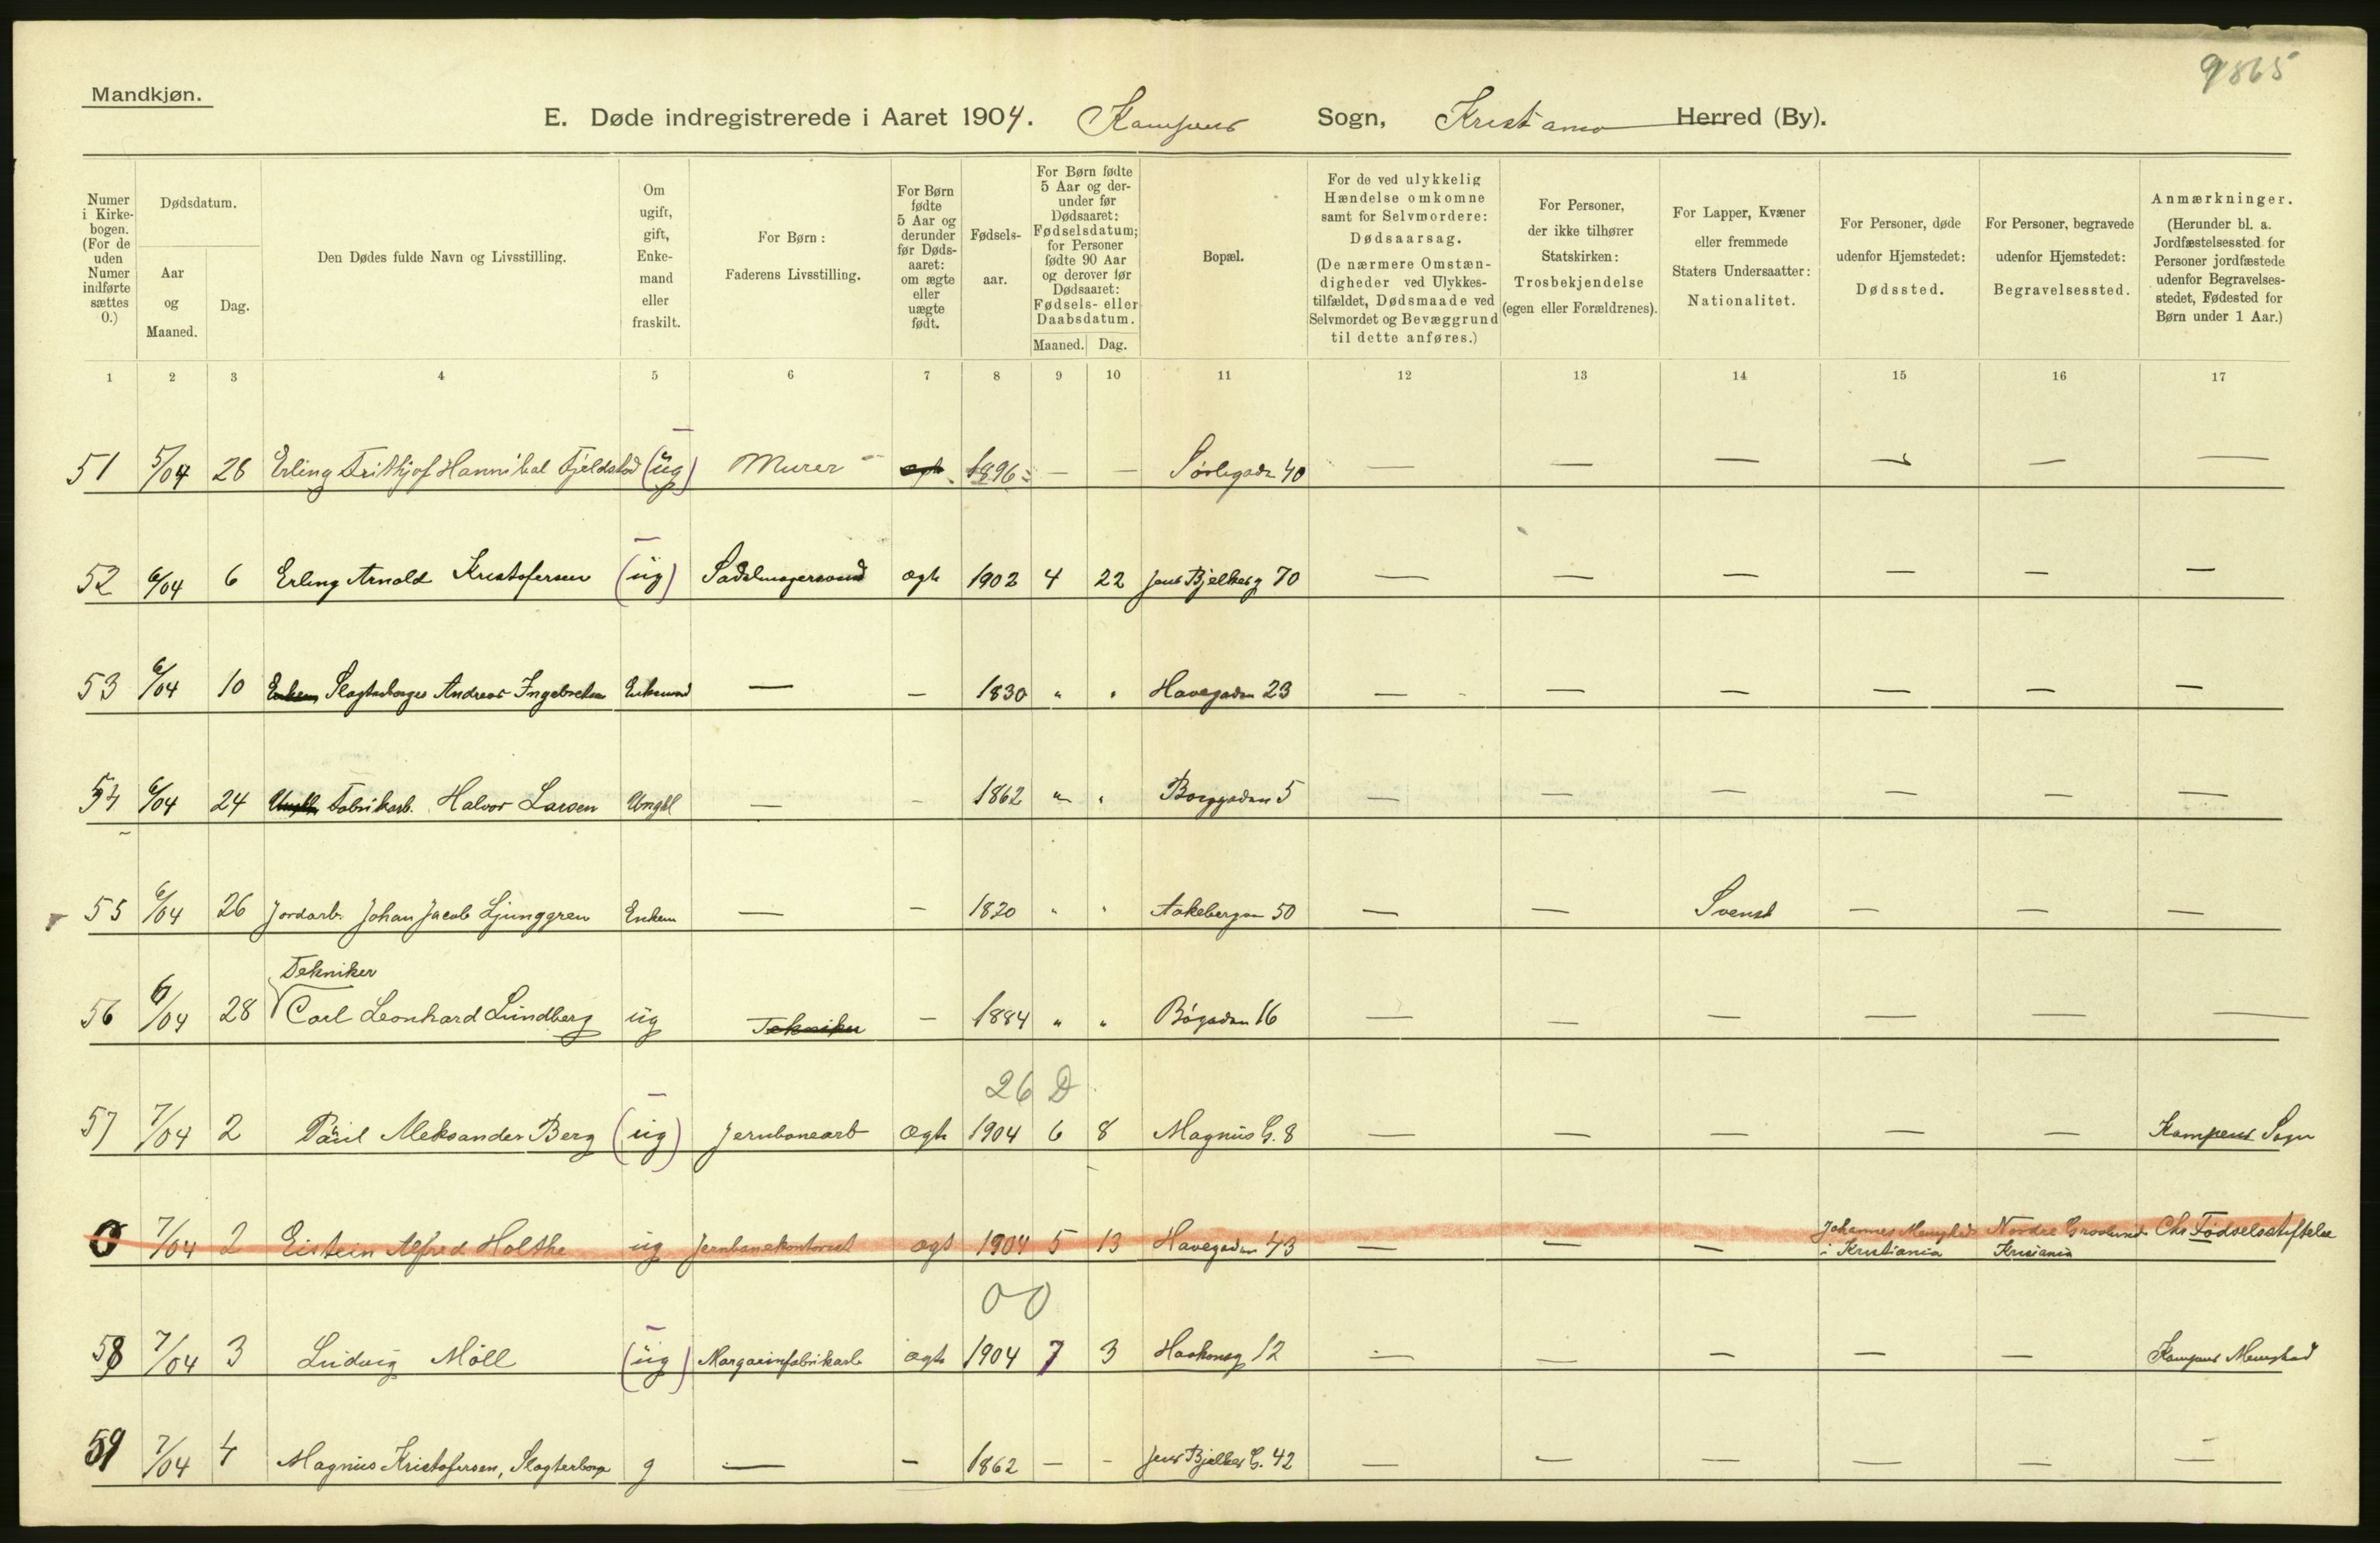 9865
Mandkjøn.
E. Døde indregistrerede i Aaret 1904. Kampens Sogn, Kristiania Herred (By).
Numer i Kirkebogen. (For de uden Numer indførte sættes 0.)
Dødsdatum.
Aar og Maaned.
Dag.
Den Dødes fulde Navn og Livsstilling.
Om ugift, gift, Enkemand eller fraskilt.
For Børn: Faderens Livsstilling.
For Børn fødte 5 Aar og derunder før Dødsaaret: om ægte eller uægte født.
Fødselsaar.
For Børn fødte 5 Aar og derunder før Dødsaaret: Fødselsdatum; for Personer fødte 90 Aar og derover før Dødsaaret: Fødsels- eller Daabsdatum.
Maaned. Dag.
Bopæl.
For de ved ulykkelig Hændelse omkomne samt for Selvmordere: Dødsaarsag. (De nærmere Omstændigheder ved Ulykkestilfældet, Dødsmaade ved Selvmordet og Bevæggrund til dette anføres.)
For Personer, der ikke tilhører Statskirken: Trosbekjendelse (egen eller Forældrenes).
For Lapper, Kvæner eller fremmede Staters Undersaatter: Nationalitet.
For Personer, døde udenfor Hjemstedet: Dødssted.
For Personer, begravede udenfor Hjemstedet: Begravelsessted.
Anmærkninger. (Herunder bl. a. Jordfæstelsessted for Personer jordfæstede udenfor Begravelsesstedet, Fødested for Børn under 1 Aar.)
1 2 3 4 5 6 7 8 9 10 11 12 13 14 15 16 17
51 5/04 28 Erling Frithjof Hannibal Fjeldstad (ug) Murer ægte 1896 — — Sørligadn 40 — — — — — —
52 6/04 6 Erling Arnold Kristofersen (ug) ægte 1902 4 22 Jens Bjelkesg 70 — — — — — —
53 6/04 10 Enkem Slagterborger Andreas Ingebretsen Enkemand — — 1830 " " Havegaden 23 — — — — — —
54 6/04 24 Ungkl Fabrikarb. Halvor Larsen Ungkl — — 1862 " " Borggaden 5 — — — — — —
55 6/04 26 Jordarb. Johan Jacob Ljunggren Enkem — — 1820 " " Aakebergvn 50 — — Svensk — — —
Tekniker
56 6/04 28 Carl Leonhard Lundberg ug Tekniker — 1884 " " Bøgaden 16 — — — — — —
26 D
57 7/04 2 Paul Aleksander Berg (ug) Jernbanearb ægte 1904 6 8 Magnus G. 8 — — — — — Kampens Sogn
0 7/04 2 Eistein Alfred Holthe ug Jernbanekontorist ægte 1904 5 13 Havegaden 43 — — — Johannes Menighed Nordre Gravlund Chr Fødselsstiftelse
i Kristiania Kristiania
00
58 7/04 3 Ludvig Möll (ug) Margarinfabrikarb ægte 1904 7 3 Haakonsg 12 — — — — — Kampens Menighed
59 7/04 4 Magnus Kristofersen, Slagterborger g — — 1862 — — Jens Bjelkes G. 42 — — — — — —